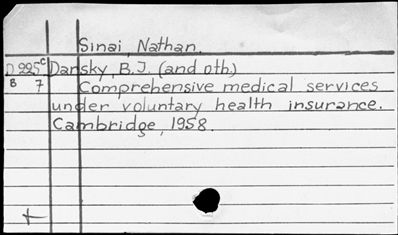 Sinai, Nathan.
D225c Darsky, B.J. (and oth.)
8 7 Comprehensive medical services
under voluntary health insurance.
Cambridge, 1958.